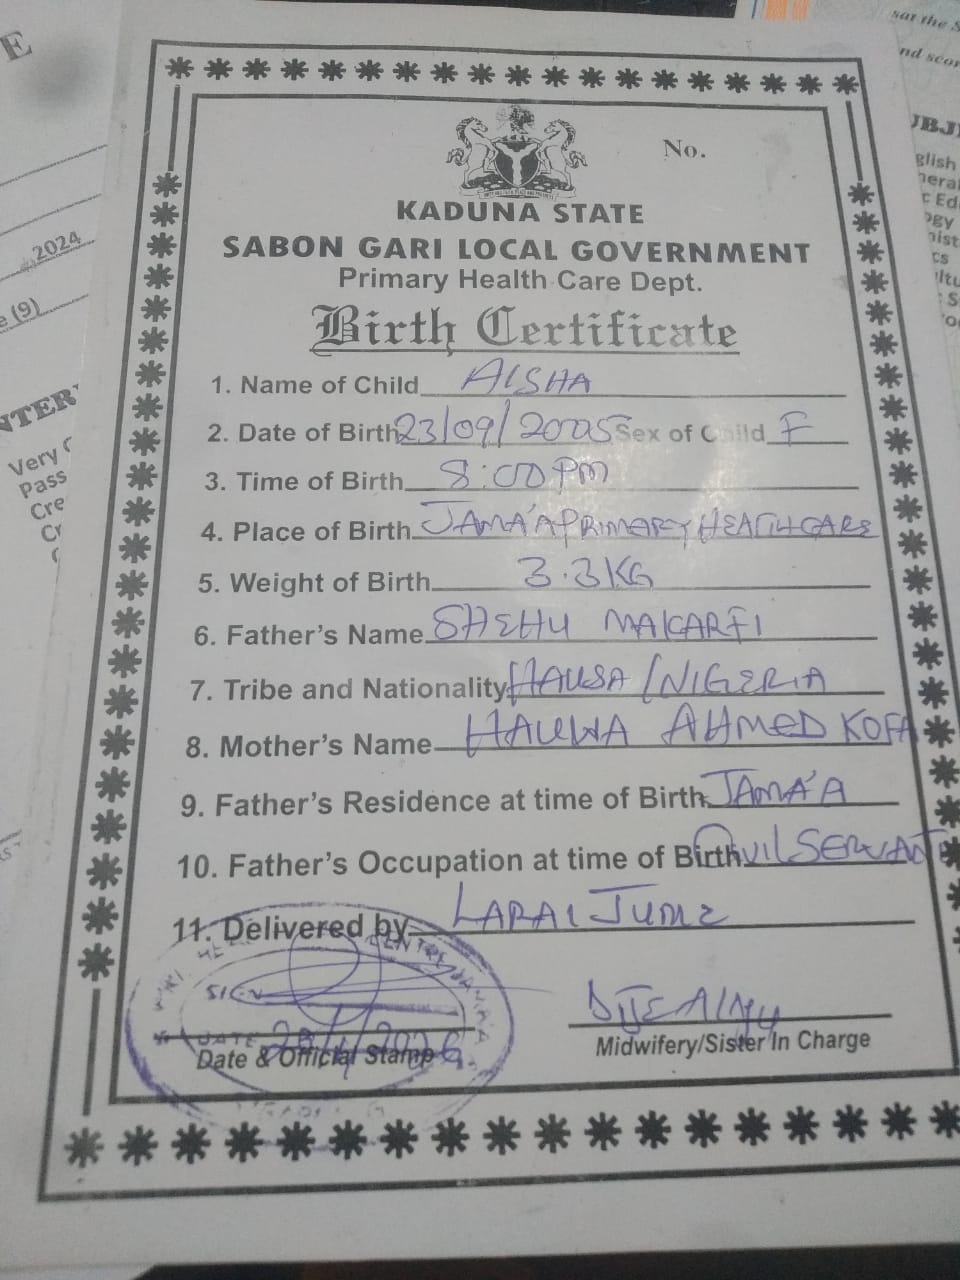 E
sat the S
nd scor
2024
e (9)
NTER
Very
Pass
Cre
UBJE
glish
nera
c Ed
No.
KADUNA STATE
SABON GARI LOCAL GOVERNMENT
Primary Health Care Dept.
Birth Certificate
1. Name of Child AISHA
2. Date of Birth 23/09/2005 Sex of Child F
3. Time of Birth 8:00 PM
4. Place of Birth JAMA'A PRIMARY HEALTH CARE
5. Weight of Birth 3.3KG
6. Father's Name SHEHU MAKARFI
7. Tribe and Nationality HAUSA/NIGERIA
8. Mother's Name HAUWA AHMED KOFA
9. Father's Residence at time of Birth JAMA'A
10. Father's Occupation at time of Birth CIVIL SERVANT
11. Delivered by LARAI
SIGN
DATE
Date & Official Stamp
Midwifery/Sister In Charge